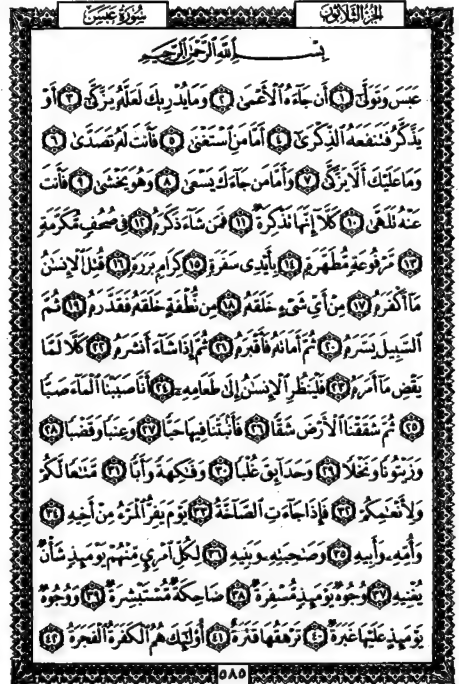 الجُزْءُ الثَّلَاثُونَ
سُورَةُ عَبَسَ
بِسْمِ اللَّهِ الرَّحْمَٰنِ الرَّحِيمِ
عَبَسَ وَتَوَلَّىٰٓ ١ أَن جَآءَهُ ٱلْأَعْمَىٰ ٢ وَمَا يُدْرِيكَ لَعَلَّهُۥ يَزَّكَّىٰٓ ٣ أَوْ
يَذَّكَّرُ فَتَنفَعَهُ ٱلذِّكْرَىٰٓ ٤ أَمَّا مَنِ ٱسْتَغْنَىٰ ٥ فَأَنتَ لَهُۥ تَصَدَّىٰ ٦
وَمَا عَلَيْكَ أَلَّا يَزَّكَّىٰ ٧ وَأَمَّا مَن جَآءَكَ يَسْعَىٰ ٨ وَهُوَ يَخْشَىٰ ٩ فَأَنتَ
عَنْهُ تَلَهَّىٰ ١٠ كَلَّآ إِنَّهَا تَذْكِرَةٌ ١١ فَمَن شَآءَ ذَكَرَهُۥ ١٢ فِى صُحُفٍ مُّكَرَّمَةٍ
١٣ مَّرْفُوعَةٍ مُّطَهَّرَةٍۭ ١٤ بِأَيْدِى سَفَرَةٍ ١٥ كِرَامٍۭ بَرَرَةٍ ١٦ قُتِلَ ٱلْإِنسَٰنُ
مَآ أَكْفَرَهُۥ ١٧ مِنْ أَىِّ شَىْءٍ خَلَقَهُۥ ١٨ مِن نُّطْفَةٍ خَلَقَهُۥ فَقَدَّرَهُۥ ١٩ ثُمَّ
ٱلسَّبِيلَ يَسَّرَهُۥ ٢٠ ثُمَّ أَمَاتَهُۥ فَأَقْبَرَهُۥ ٢١ ثُمَّ إِذَا شَآءَ أَنشَرَهُۥ ٢٢ كَلَّا لَمَّا
يَقْضِ مَآ أَمَرَهُۥ ٢٣ فَلْيَنظُرِ ٱلْإِنسَٰنُ إِلَىٰ طَعَامِهِۦٓ ٢٤ أَنَّا صَبَبْنَا ٱلْمَآءَ صَبًّا
٢٥ ثُمَّ شَقَقْنَا ٱلْأَرْضَ شَقًّا ٢٦ فَأَنۢبَتْنَا فِيهَا حَبًّا ٢٧ وَعِنَبًا وَقَضْبًا ٢٨
وَزَيْتُونًا وَنَخْلًا ٢٩ وَحَدَآئِقَ غُلْبًا ٣٠ وَفَٰكِهَةً وَأَبًّا ٣١ مَّتَٰعًا لَّكُمْ
وَلِأَنْعَٰمِكُمْ ٣٢ فَإِذَا جَآءَتِ ٱلصَّآخَّةُ ٣٣ يَوْمَ يَفِرُّ ٱلْمَرْءُ مِنْ أَخِيهِ ٣٤
وَأُمِّهِۦ وَأَبِيهِ ٣٥ وَصَٰحِبَتِهِۦ وَبَنِيهِ ٣٦ لِكُلِّ ٱمْرِئٍ مِّنْهُمْ يَوْمَئِذٍ شَأْنٌ
يُغْنِيهِ ٣٧ وُجُوهٌ يَوْمَئِذٍ مُّسْفِرَةٌ ٣٨ ضَاحِكَةٌ مُّسْتَبْشِرَةٌ ٣٩ وَوُجُوهٌ
يَوْمَئِذٍ عَلَيْهَا غَبَرَةٌ ٤٠ تَرْهَقُهَا قَتَرَةٌ ٤١ أُو۟لَٰٓئِكَ هُمُ ٱلْكَفَرَةُ ٱلْفَجَرَةُ ٤٢
٥٨٥